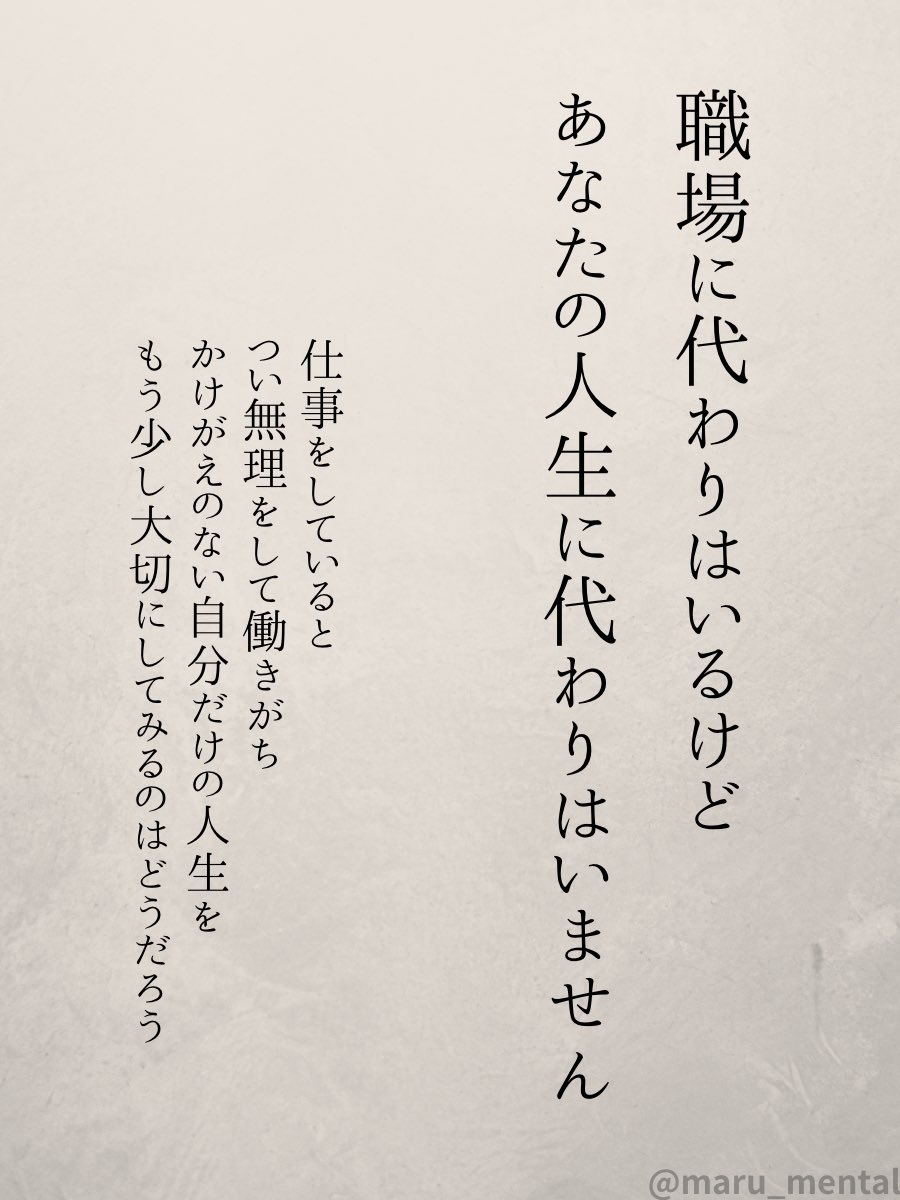 職場に代わりはいるけど
あなたの人生に代わりはいません
仕事をしていると
つい無理をして働きがち
かけがえのない自分だけの人生を
もう少し大切にしてみるのはどうだろう
@maru_mental